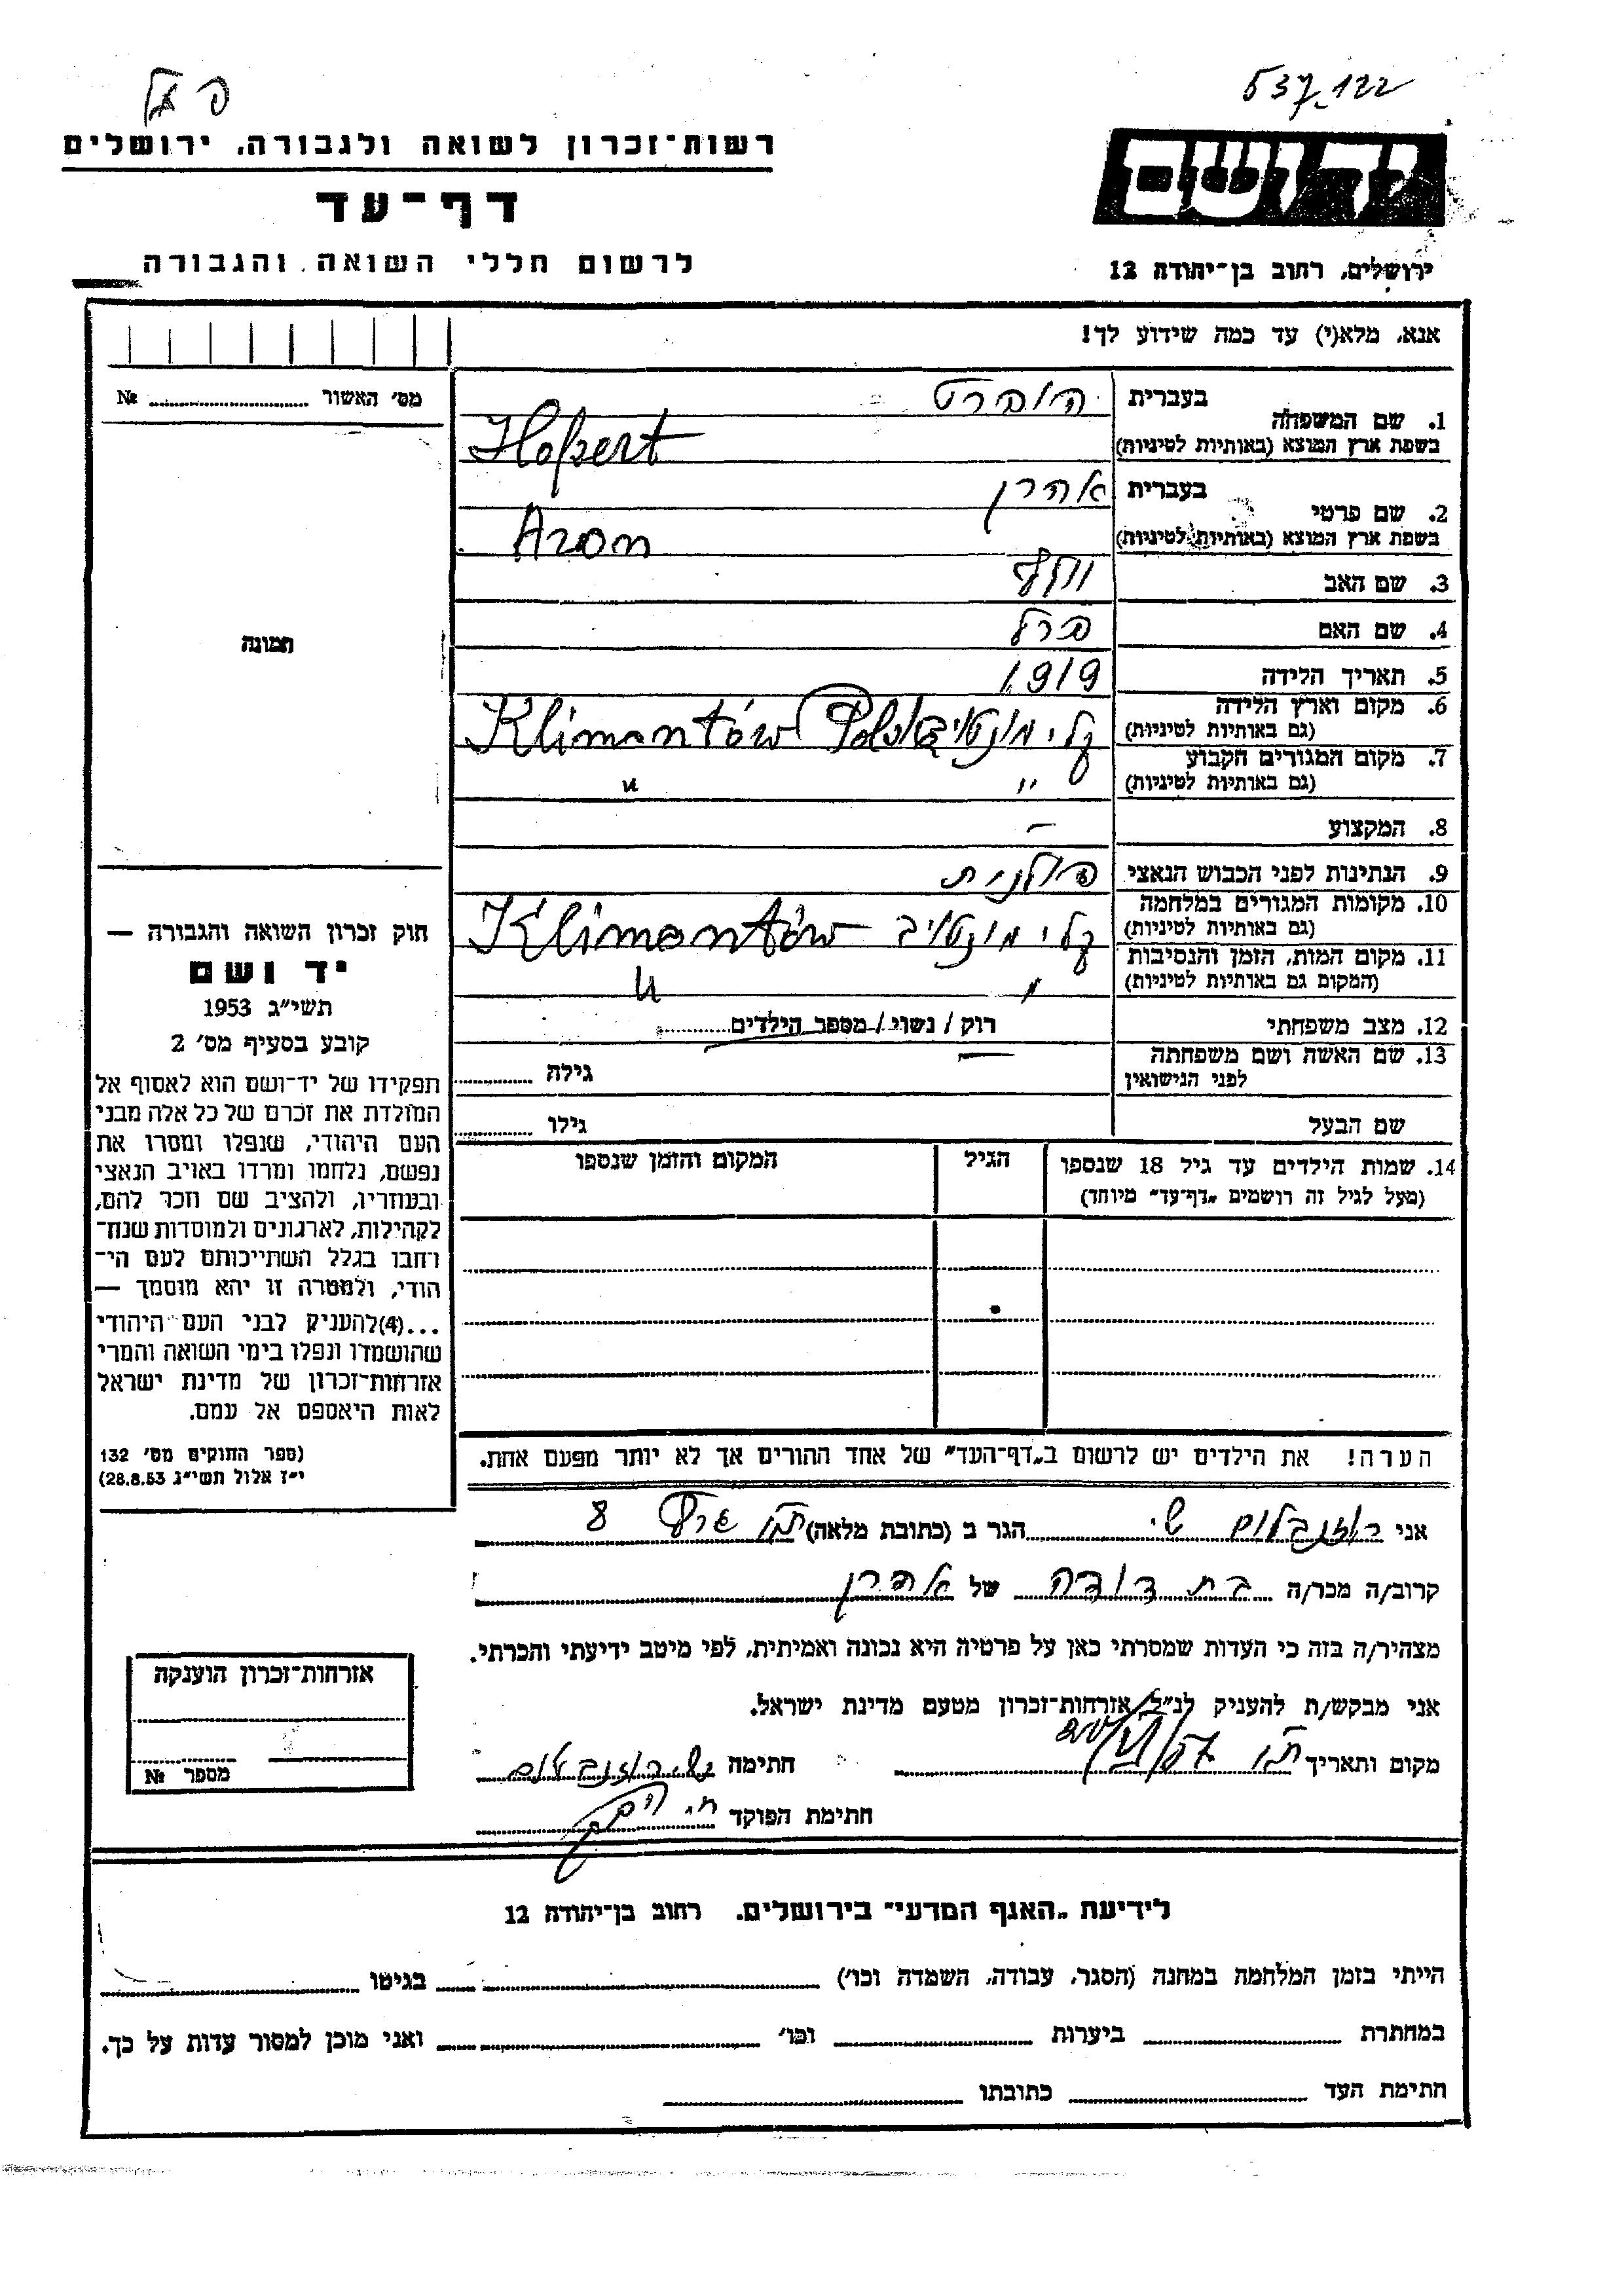 537-122
רשות־זכרון לשואה ולגבורה, ירושלים
יד ושם
דף־עד
לרשום חללי השואה והגבורה
ירושלים, רחוב בן־יהודה 12
אנא, מלא(י) עד כמה שידוע לך!
מס׳ האשור № ..........
1. שם המשפחה בעברית הוברט
בשפת ארץ המוצא (באותיות לטיניות) Hopert
2. שם פרטי בעברית אהרן
בשפת ארץ המוצא (באותיות לטיניות) Aron
3. שם האב וולף
4. שם האם פרל
5. תאריך הלידה 1919
6. מקום וארץ הלידה קלימונטוב Pols Klimontów
(גם באותיות לטיניות)
7. מקום המגורים הקבוע
(גם באותיות לטיניות) " "
8. המקצוע –
9. הנתינות לפני הכבוש הנאצי פולנית
10. מקומות המגורים במלחמה קלימונטוב Klimontów
(גם באותיות לטיניות)
11. מקום המות, הזמן והנסיבות
(המקום גם באותיות לטיניות) " "
12. מצב משפחתי רוק / נשוי / מספר הילדים..........
13. שם האשה ושם משפחתה — גילה ..........
לפני הנישואין
שם הבעל גילו ..........
14. שמות הילדים עד גיל 18 שנספו הגיל המקום והזמן שנספו
(מעל לגיל זה רושמים „דף־עד״ מיוחד)
תמונה
חוק זכרון השואה והגבורה —
יד ושם
תשי״ג 1953
קובע בסעיף מס׳ 2
תפקידו של יד־ושם הוא לאסוף אל
המולדת את זכרם של כל אלה מבני
העם היהודי, שנפלו ומסרו את
נפשם, נלחמו ומרדו באויב הנאצי
ובעוזריו, ולהציב שם וזכר להם,
לקהילות, לארגונים ולמוסדות שנח־
רחבו בגלל השתייכותם לעם הי־
הודי, ולמטרה זו יהא מוסמך —
...(4)להעניק לבני העם היהודי
שהושמדו ונפלו בימי השואה והמרי
אזרחות־זכרון של מדינת ישראל
לאות היאספם אל עמם.
(ספר החוקים מס׳ 132
י״ז אלול תשי״ג 28.8.53)
הערה! את הילדים יש לרשום ב„דף־העד״ של אחד ההורים אך לא יותר מפעם אחת.
אני רוזנבלום הגר ב (כתובת מלאה) 8
קרוב/ה מכר/ה בת דודה של אהרן
מצהיר/ה בזה כי העדות שמסרתי כאן על פרטיה היא נכונה ואמיתית, לפי מיטב ידיעתי והכרתי.
אני מבקש/ת להעניק לנ״ל אזרחות־זכרון מטעם מדינת ישראל.
מקום ותאריך חתימה רוזנבלום
חתימת הפוקד
אזרחות־זכרון הוענקה
מספר №
לידיעת „האגף המדעי״ בירושלים, רחוב בן־יהודה 12
הייתי בזמן המלחמה במחנה (הסגר, עבודה, השמדה וכו׳) .......... בגיטו ..........
במחתרת .......... ביערות .......... וכו׳ .......... ואני מוכן למסור עדות על כך.
חתימת העד .......... כתובתו ..........